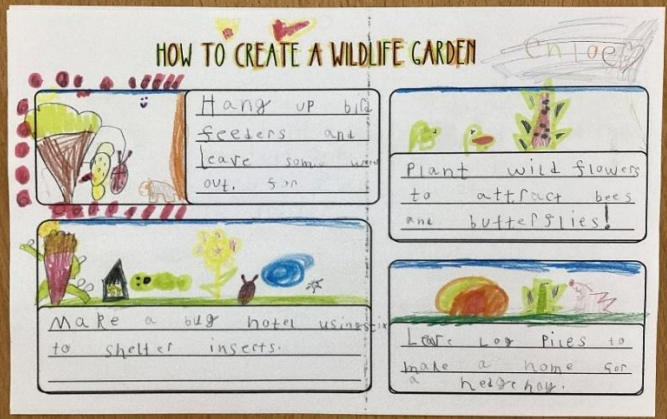 HOW TO CREATE A WILDLIFE GARDEN
Chloe
Hang up bird
feeders and
leave some
out. for
Plant wild flowers
to attract bees
and butterflies!
Make a bug hotel using
to shelter insects.
Leave Log Piles to
make a home for
a hedgehog.